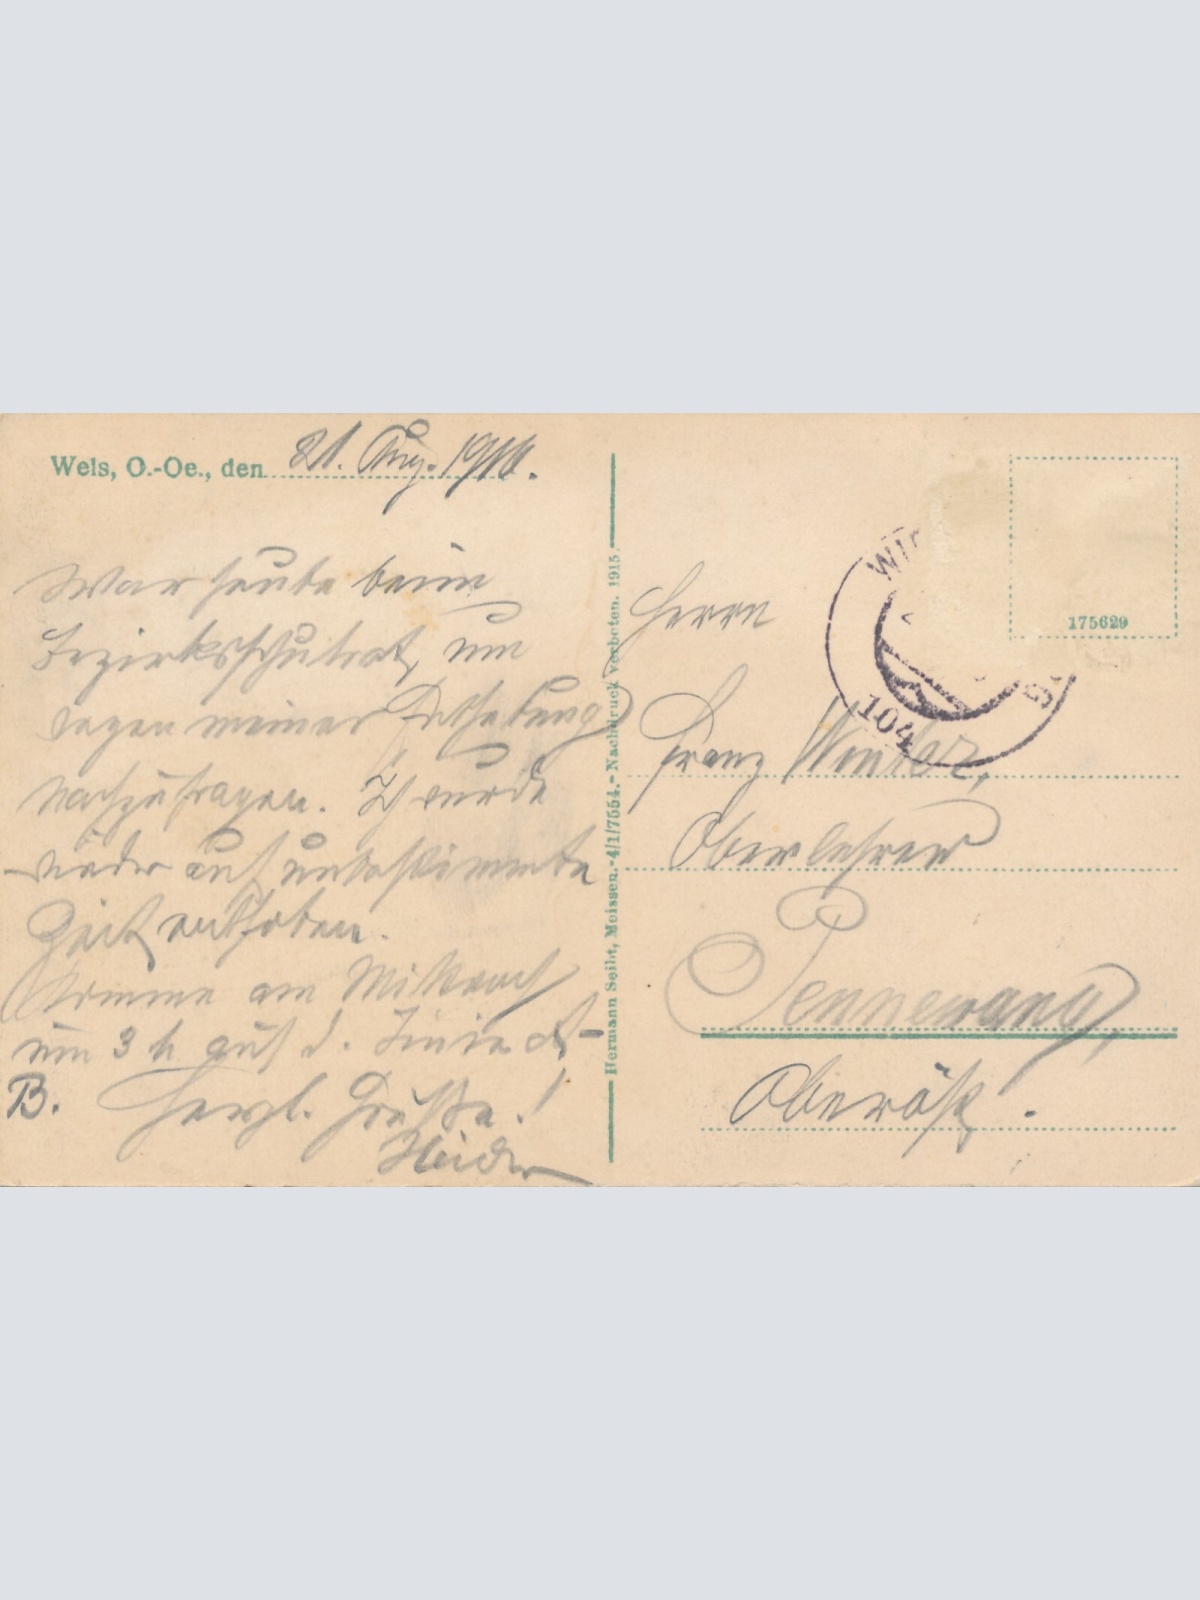 Wels, O.-Oe., den 21. Aug. 1916.
War heute beim
Bezirksschulrat, um
wegen meiner Enthebung
nachzufragen. Ich wurde
wieder auf unbestimmte
Zeit enthoben.
Komme am Mittwoch
um 3 h auf d.
B. Herzl. Grüße!
Hermann Seibt, Meissen.-4/1/7554.- Nachdruck verboten. 1915.
175629
104
Herrn
Franz Winter,
Oberlehrer
Pennewang,
Oberöst.